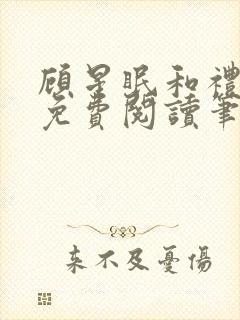 顾星眠和禮
免費閱讀筆
来不及憂傷